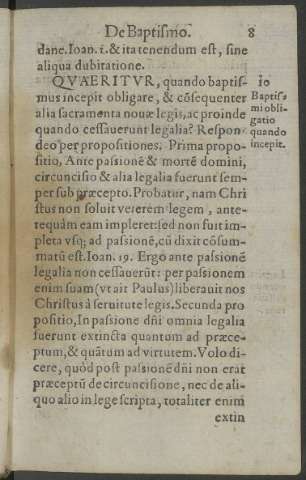 De Baptismo. 8
dane. Ioan. i. & ita tenendum est, sine
aliqua dubitatione.
QVAERITVR, quando baptis-
mus incepit obligare, & cōsequenter
alia sacramenta nouæ legis, ac proinde
quando cessauerunt legalia? Respon-
deo per propositiones. Prima propo-
sitio, Ante passionē & mortē domini,
circuncisio & alia legalia fuerunt sem-
per sub præcepto. Probatur, nam Chri
stus non soluit veterem legem, ante-
tequám eam impleret: sed non fuit im-
pleta vsq; ad passionē, cū dixit cōsum-
matū est. Ioan. 19. Ergo ante passionē
legalia non cessauerūt: per passionem
enim suam (vt ait Paulus) liberauit nos
Christus à seruitute legis. Secunda pro
positio, In passione dñi omnia legalia
fuerunt extincta quantum ad præce-
ptum, & quātum ad virtutem. Volo di-
cere, quòd post passionē dñi non erat
præceptū de circuncisione, nec de ali-
quo alio in lege scripta, totaliter enim
extin
10
Baptis-
mi obli-
gatio
quando
incepit.